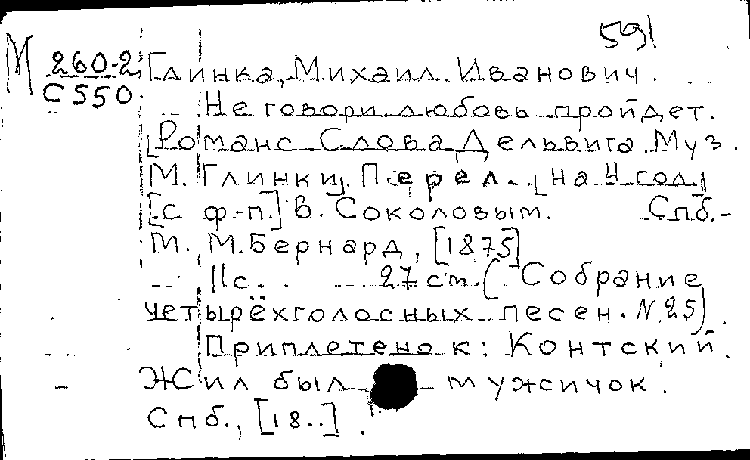 591
М 260-2 Глинка, Михаил Иванович.
С 550
Не говори любовь пройдет.
[Романс. Слова Дельвига. Муз.
М. Глинки]. Перел. [на 4 гол.]
[с ф-п.] В. Соколовым. Спб.-
М., М. Бернард, [1875]
11с. 27 см. (Собрание
четырёхголосных песен. N. 25).
Приплетено к: Контский.
Жил был мужичок.
Спб., [18..].